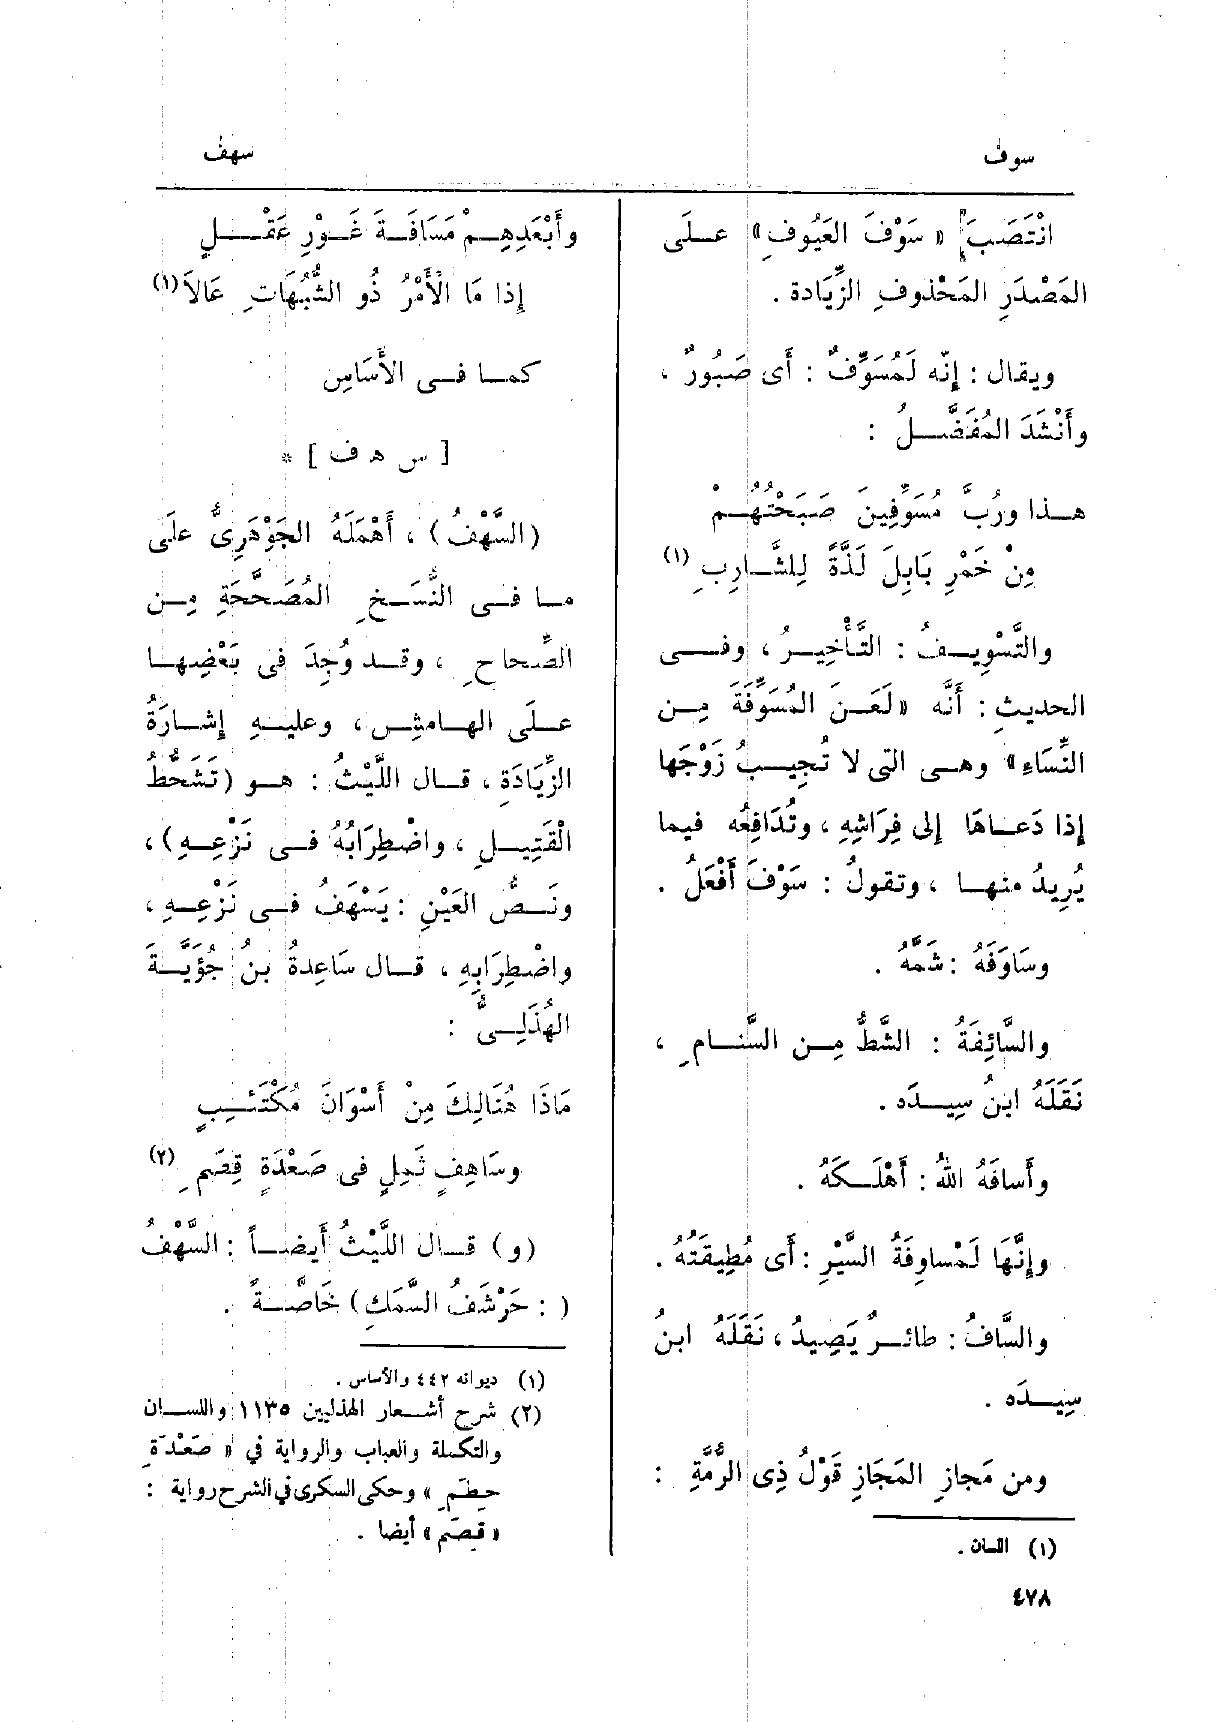 سوف
سهف
انْتَصَبَ « سَوْفَ العَيُوفِ » عـلَى
المَصْدَرِ المَحْذوفِ الزِّيَادة .
ويقال : إِنّه لَمُسَوِّفٌ : أَى صَبُورٌ ،
وأَنْشَدَ المُفَضَّلُ :
هـذا ورُبَّ مُسَوِّفِينَ صَبَحْتُهُمْ
مِنْ خَمْرِ بَابِلَ لَذَّةً لِلشَّارِبِ (١)
والتَّسْوِيفُ : التَّأْخِيرُ ، وفـى
الحديثِ : أَنَّه « لَعَنَ المُسَوِّفَةَ مِـن
النِّسَاءِ » وهـى التى لا تُجِيبُ زَوْجَها
إذا دَعـاهَا إِلى فِرَاشِهِ ، وتُدَافِعُه فيما
يُرِيدُ منهـا ، وتقولُ : سَوْفَ أَفْعَلُ .
وسَاوَفَهُ : شَمَّهُ .
والسَّائِفَةُ : الشَّطُّ مِـن السَّنـامِ ،
نَقَلَهُ ابنُ سِيـدَه .
وأَسافَهُ اللهُ : أَهْلَـكَهُ .
وإِنَّهَا لَمْساوِفَةُ السَّيْرِ : أَى مُطِيقَتُهُ .
والسَّافُ : طائـرٌ يَصِيدُ ، نَقَلَهُ ابنُ
سِيـدَه .
ومن مَجازِ المَجَازِ قَوْلُ ذِى الرُّمَّةِ :
(١) اللسان .
٤٧٨
وأَبْعَدِهِـمْ مَسَافَـةَ غَـوْرِ عَقْـلٍ
إِذا مَا الْأَمْرُ ذُو الشُّبُهَاتِ عَالاَ (١)
كمـا فـى الأَسَاسِ
[ س ه ف ] *
(السَّهْفُ) ، أَهْمَلَهُ الجَوْهَرِىُّ علَى
مـا فـى النُّسَخِ المُصَحَّحَةِ مِـن
الصِّحاحِ ، وقـد وُجِدَ فى بَعْضِهـا
علَى الهـامشِ ، وعليـهِ إِشـارَةُ
الزِّيَادَةِ ، قـال اللَّيْثُ : هـو (تَشَحُّطُ
الْقَتِيـلِ ، واضْطِرَابُهُ فـى نَزْعِـهِ) ،
ونَـصُّ العَيْنِ : يَسْهَفُ فـى نَزْعِـهِ ،
واضْطِرَابِهِ ، قـال سَاعِدةُ بنُ جُؤَيَّـةَ
الهُذَلِـىُّ :
مَاذَا هُنَالِكَ مِنْ أَسْوَانَ مُكْتَئِـبٍ
وسَاهِفٍ ثَمِلٍ فى صَعْدَةٍ قِصَمِ (٢)
(و) قـال اللَّيْثُ أَيضـاً : السَّهْفُ
( : حَرْشَفُ السَّمَكِ) خَاصَّـةً .
(١) ديوانه ٤٤٢ والأساس .
(٢) شرح أشعار الهذليين ١١٣٥ واللسان
والتكملة والعباب والرواية في « صَعْدَةٍ
حِطَمِ » وحكى السكرى في الشرح رواية :
« قِصَم » أيضا .